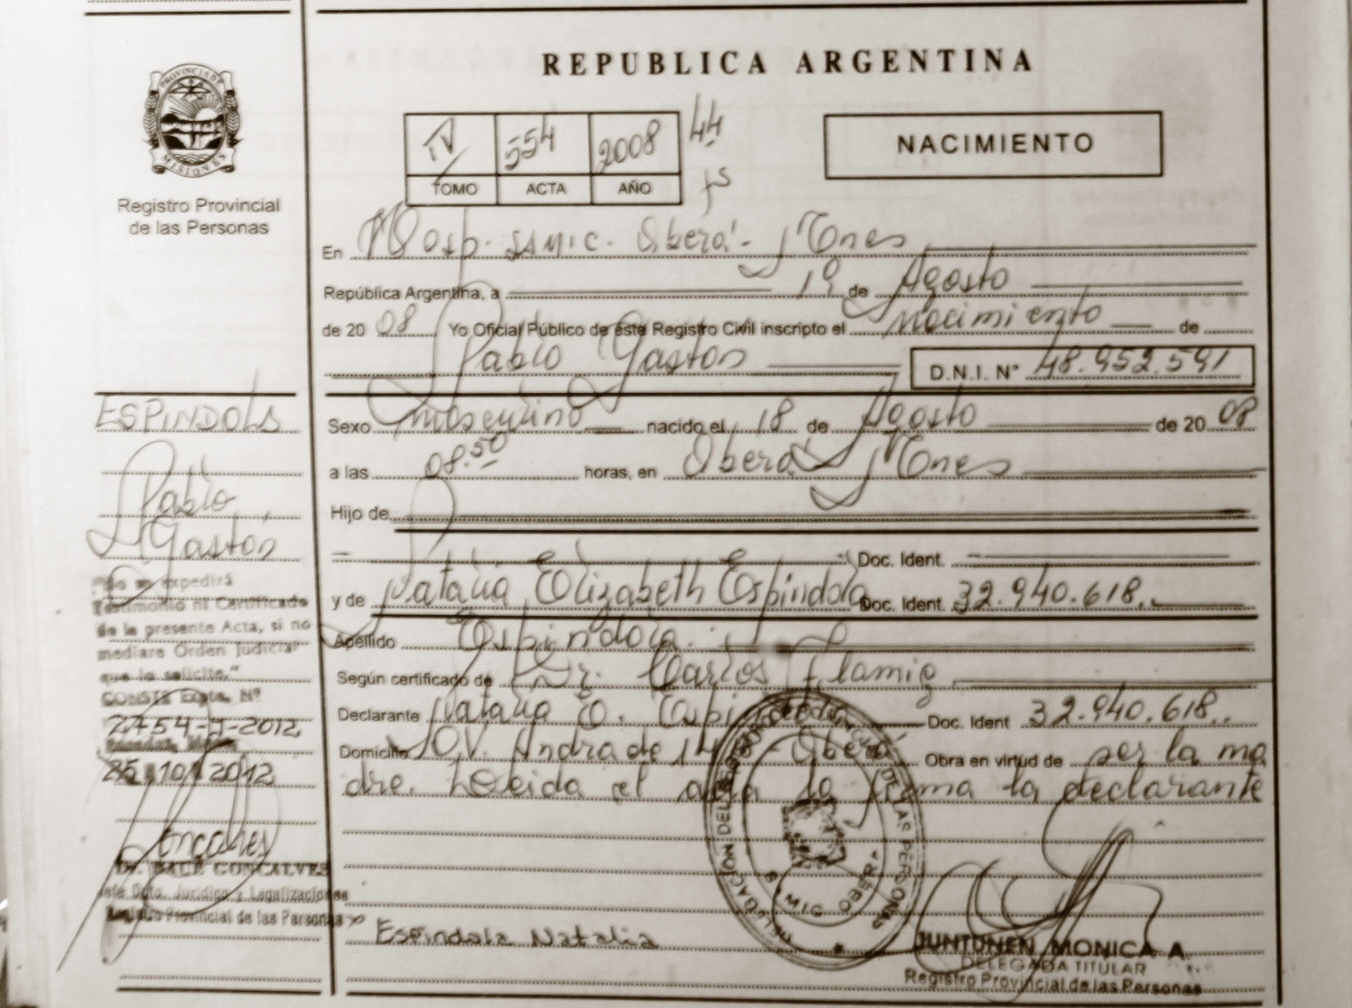 REPUBLICA ARGENTINA
PROVINCIA DE
MISIONES
Registro Provincial
de las Personas
IV 554 2008 44
TOMO ACTA AÑO
NACIMIENTO
En Hosp. SAMIC. Oberá - Mnes
República Argentina, a 19 de Agosto
de 2008 Yo Oficial Público de éste Registro Civil inscripto el Nacimiento de
Pablo Gastón D.N.I. N° 48.952.591
Sexo masculino nacido el 18 de Agosto de 2008
a las 08.50 horas, en Oberá Mnes
Hijo de
Doc. Ident.
y de Natalia Elizabeth Espindola Doc. Ident. 32.940.618.
Apellido Espindola.
Según certificado de Dr. Carlos Flamig
Declarante Natalia E. Doc. Ident 32.940.618.
Domicilio Andrade 14 Oberá Obra en virtud de ser la ma
dre. Leida el acta la firma la declarante
Espindola Natalia
JUNTUNEN MONICA A.
DELEGADA TITULAR
Registro Provincial de las Personas
ESPINDOLA
Pablo
Gastón
"No se expedirá
Testimonio ni Certificado
de la presente Acta, si no
mediare Orden Judicial
que lo solicite."
CONSTE Expte. Nº
2012
25 10 2012
Goncalves
GONCALVES
Jefe Dpto. Jurídico y Legalizaciones
Registro Provincial de las Personas